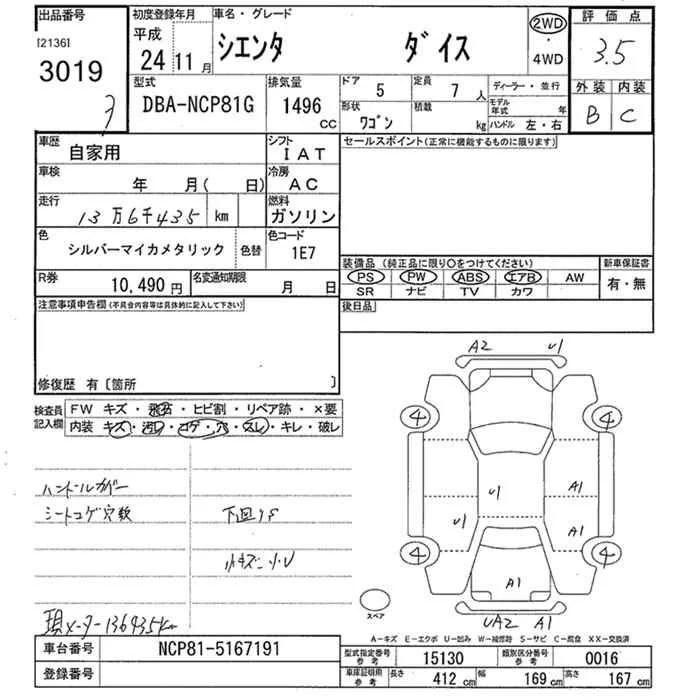 出品番号 初度登録年月 車名・グレード 評価点
[2136] 平成 シエンタ ダイス 2WD・4WD 3.5
3019 24 11月
型式 排気量 ドア 定員 ディーラー・並行 外装 内装
DBA-NCP81G 1496 CC 5 7人 モデル年式 年 B C
形状 積載 ハンドル 左・右
ワゴン kg
車歴 シフト セールスポイント(正常に機能するものに限ります)
自家用 IAT
車検 冷房
年 月( 日) AC
走行 燃料
13万6千435 km ガソリン
色 色コード
シルバーマイカメタリック 色替 1E7
装備品 (純正品に限り○をつけてください) 新車保証書
PS PW ABS エアB AW 有・無
SR ナビ TV カワ
R券 名変通知期限
10,490円 月 日
後日品
注意事項申告欄(不具合内容等は具体的に記入して下さい)
修復歴 有〔箇所 〕
検査員記入欄 FW キズ・飛石・ヒビ割・リペア跡・×要
内装 キズ・汚レ・コゲ・穴・スレ・キレ・破レ
ハンドルカバー
シートコゲ穴数
下回りS
小キズ
現メーター136435km
A2 U1
4 4
U1 A1
U1 A1
4 4
A1
スペア UA2 A1
A-キズ E-エクボ U-凹み W-補修跡 S-サビ C-腐食 XX-交換済
車台番号 NCP81-5167191
登録番号
型式指定番号 参考 15130 類別区分番号 参考 0016
車庫証明用 参考 長さ 412 cm 幅 169 cm 高さ 167 cm